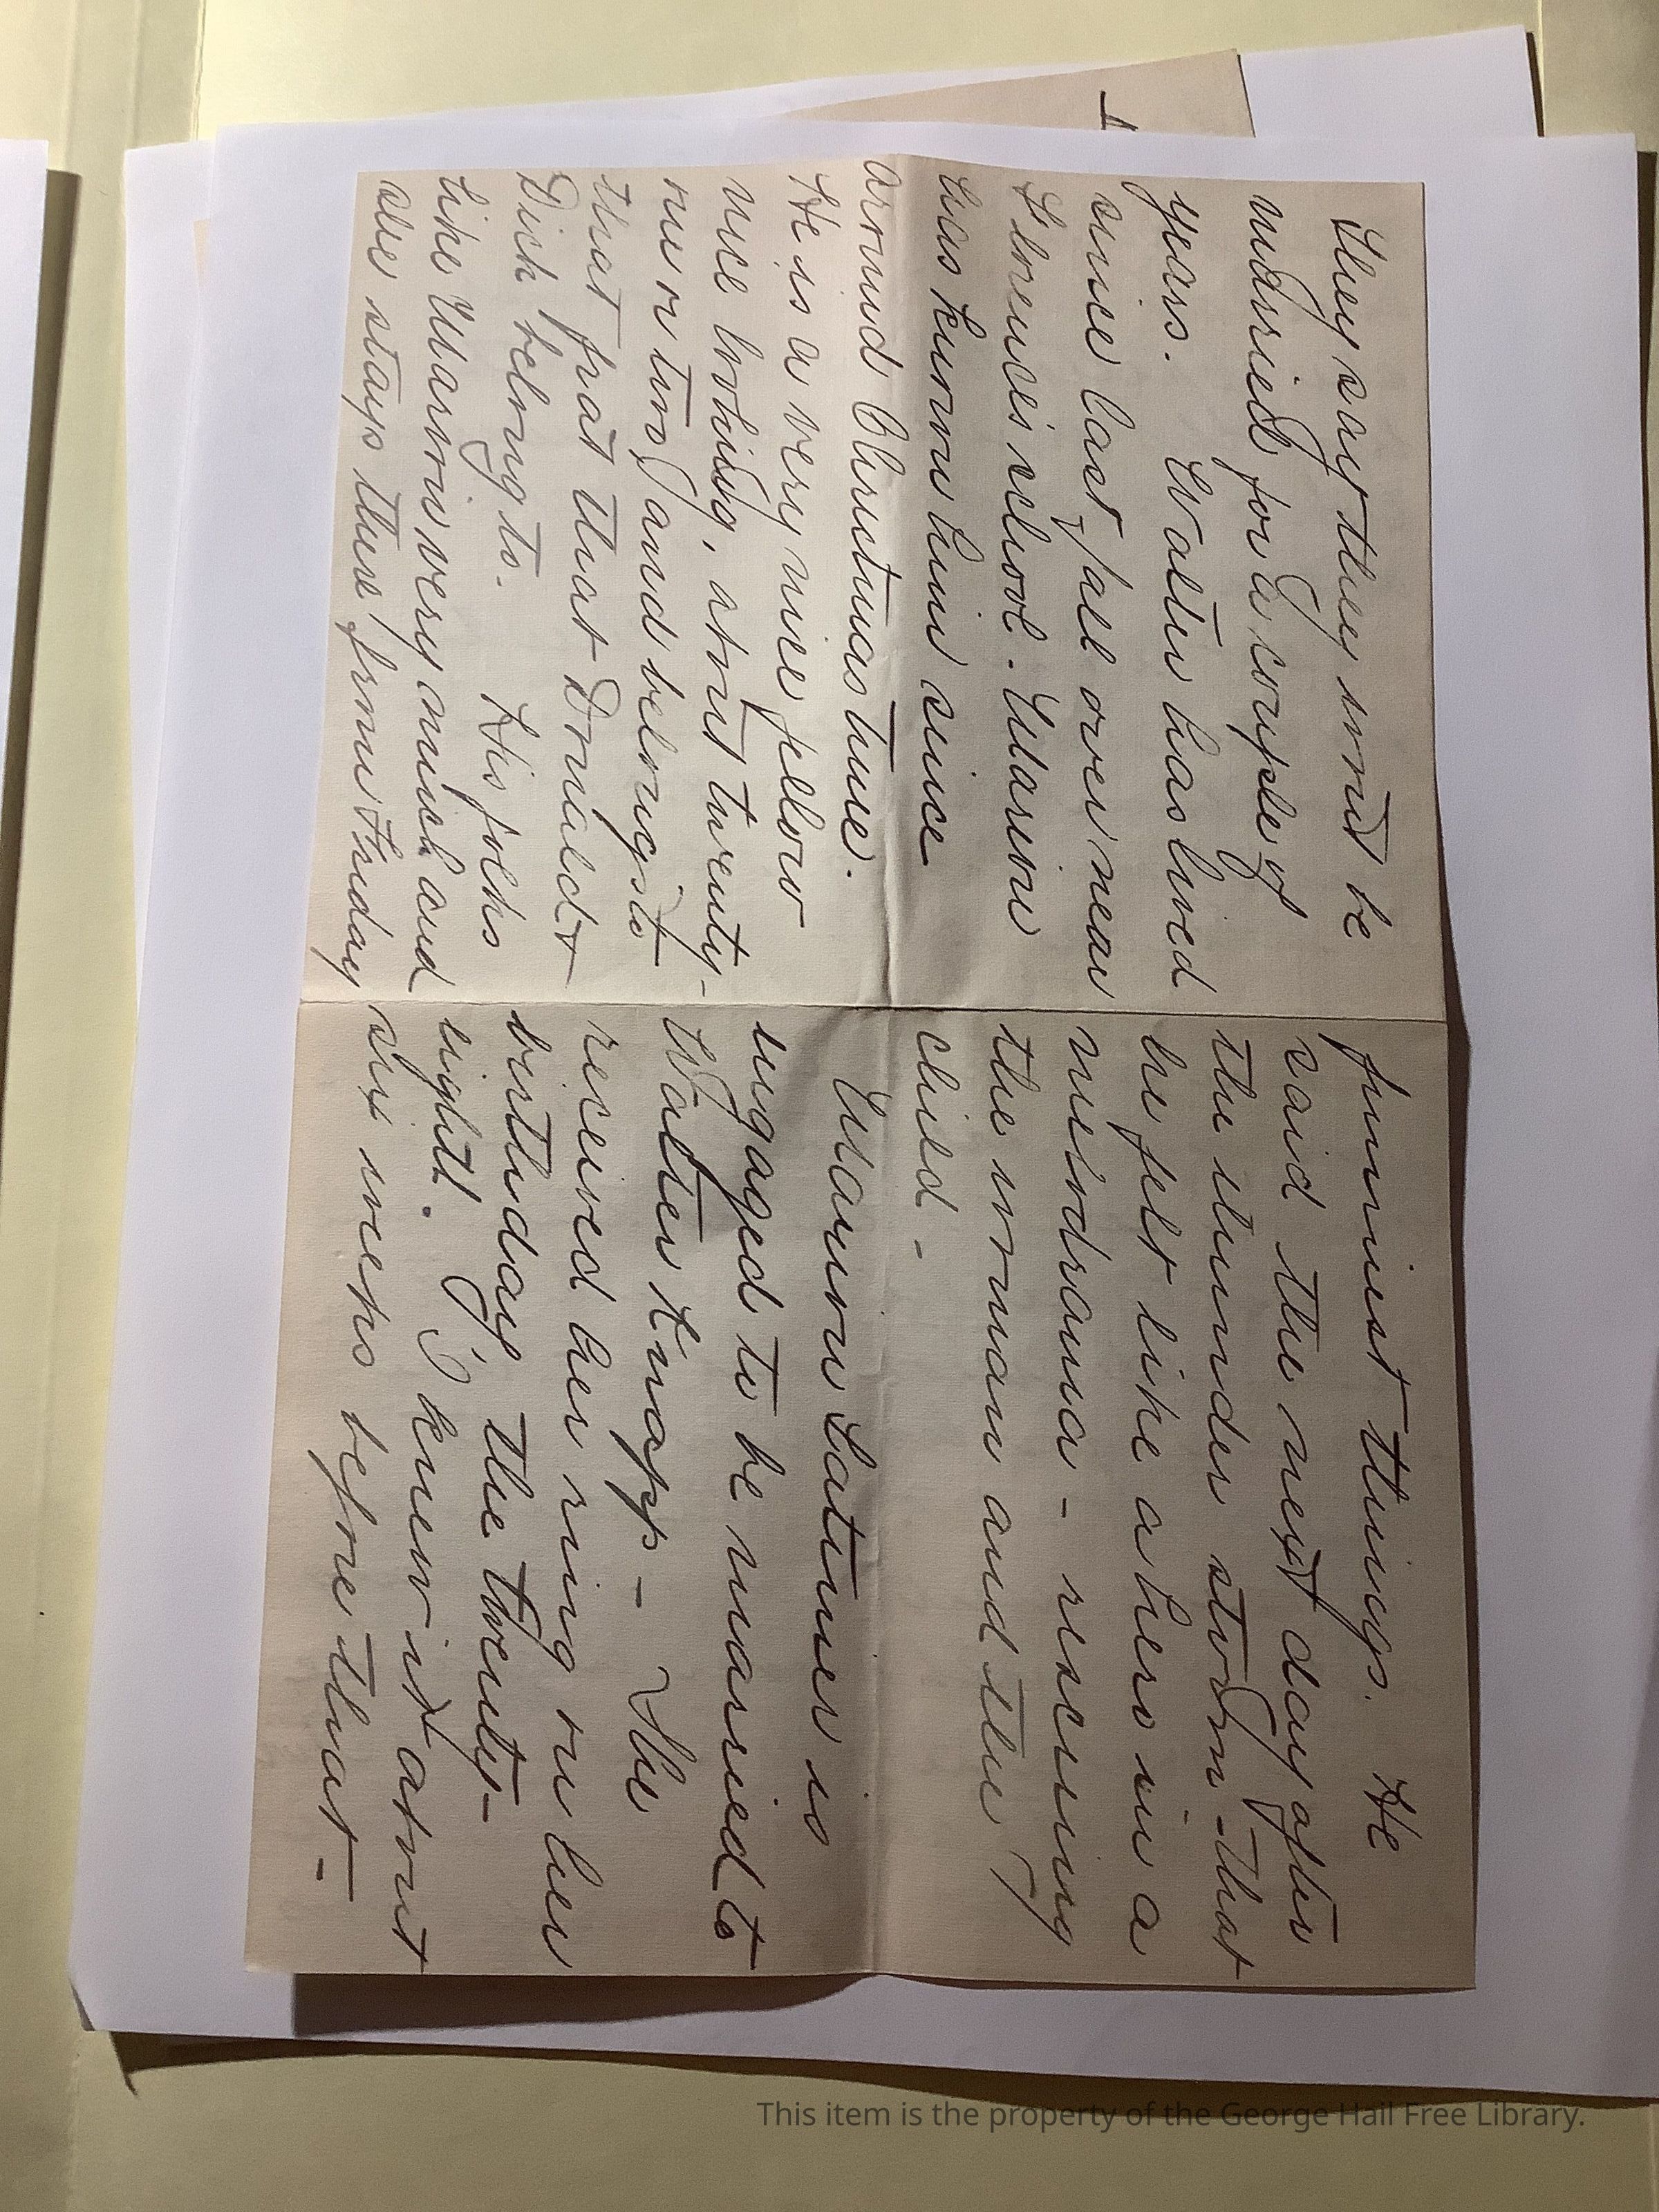 They say they wont be
married for a couple of
years. Walter has lived
since last fall over near
Florence's school. Marion
has known him since
around Christmas time.
He is a very nice fellow
nice looking, about twenty-
one or two, and belongs to
that frat that Donald &
Dick belong to. His folks
like Marion very much and
she stays there from Friday
funniest things. He
said the next day after
the thunder storm - that
he felt like a hero in a
melodrama - rescuing
the woman and the
child -
Marion Latimer is
engaged to be married to
Walter Knapp - She
received her ring on her
birthday the twenty-
eighth. I knew it about
six weeks before that -
This item is the property of the George Hail Free Library.